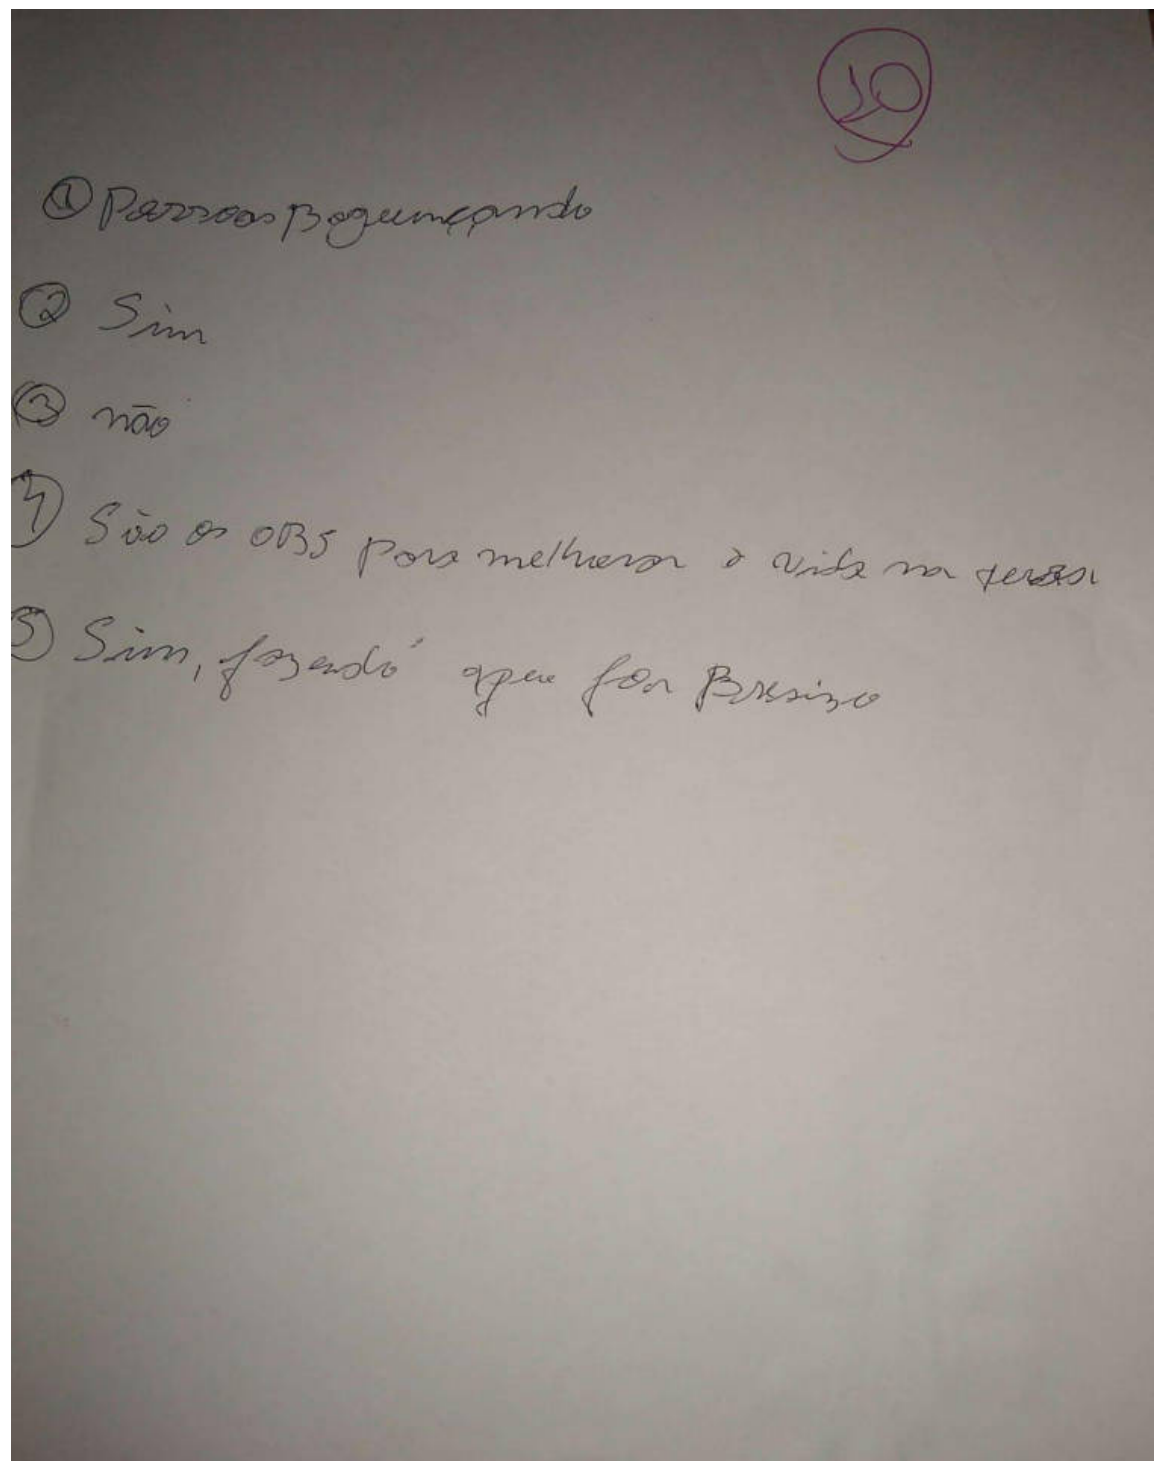 10
① Pessoas Bagunçando
② Sim
③ não
4) São os OBS para melhorar a vida na
5) Sim, fazendo que for